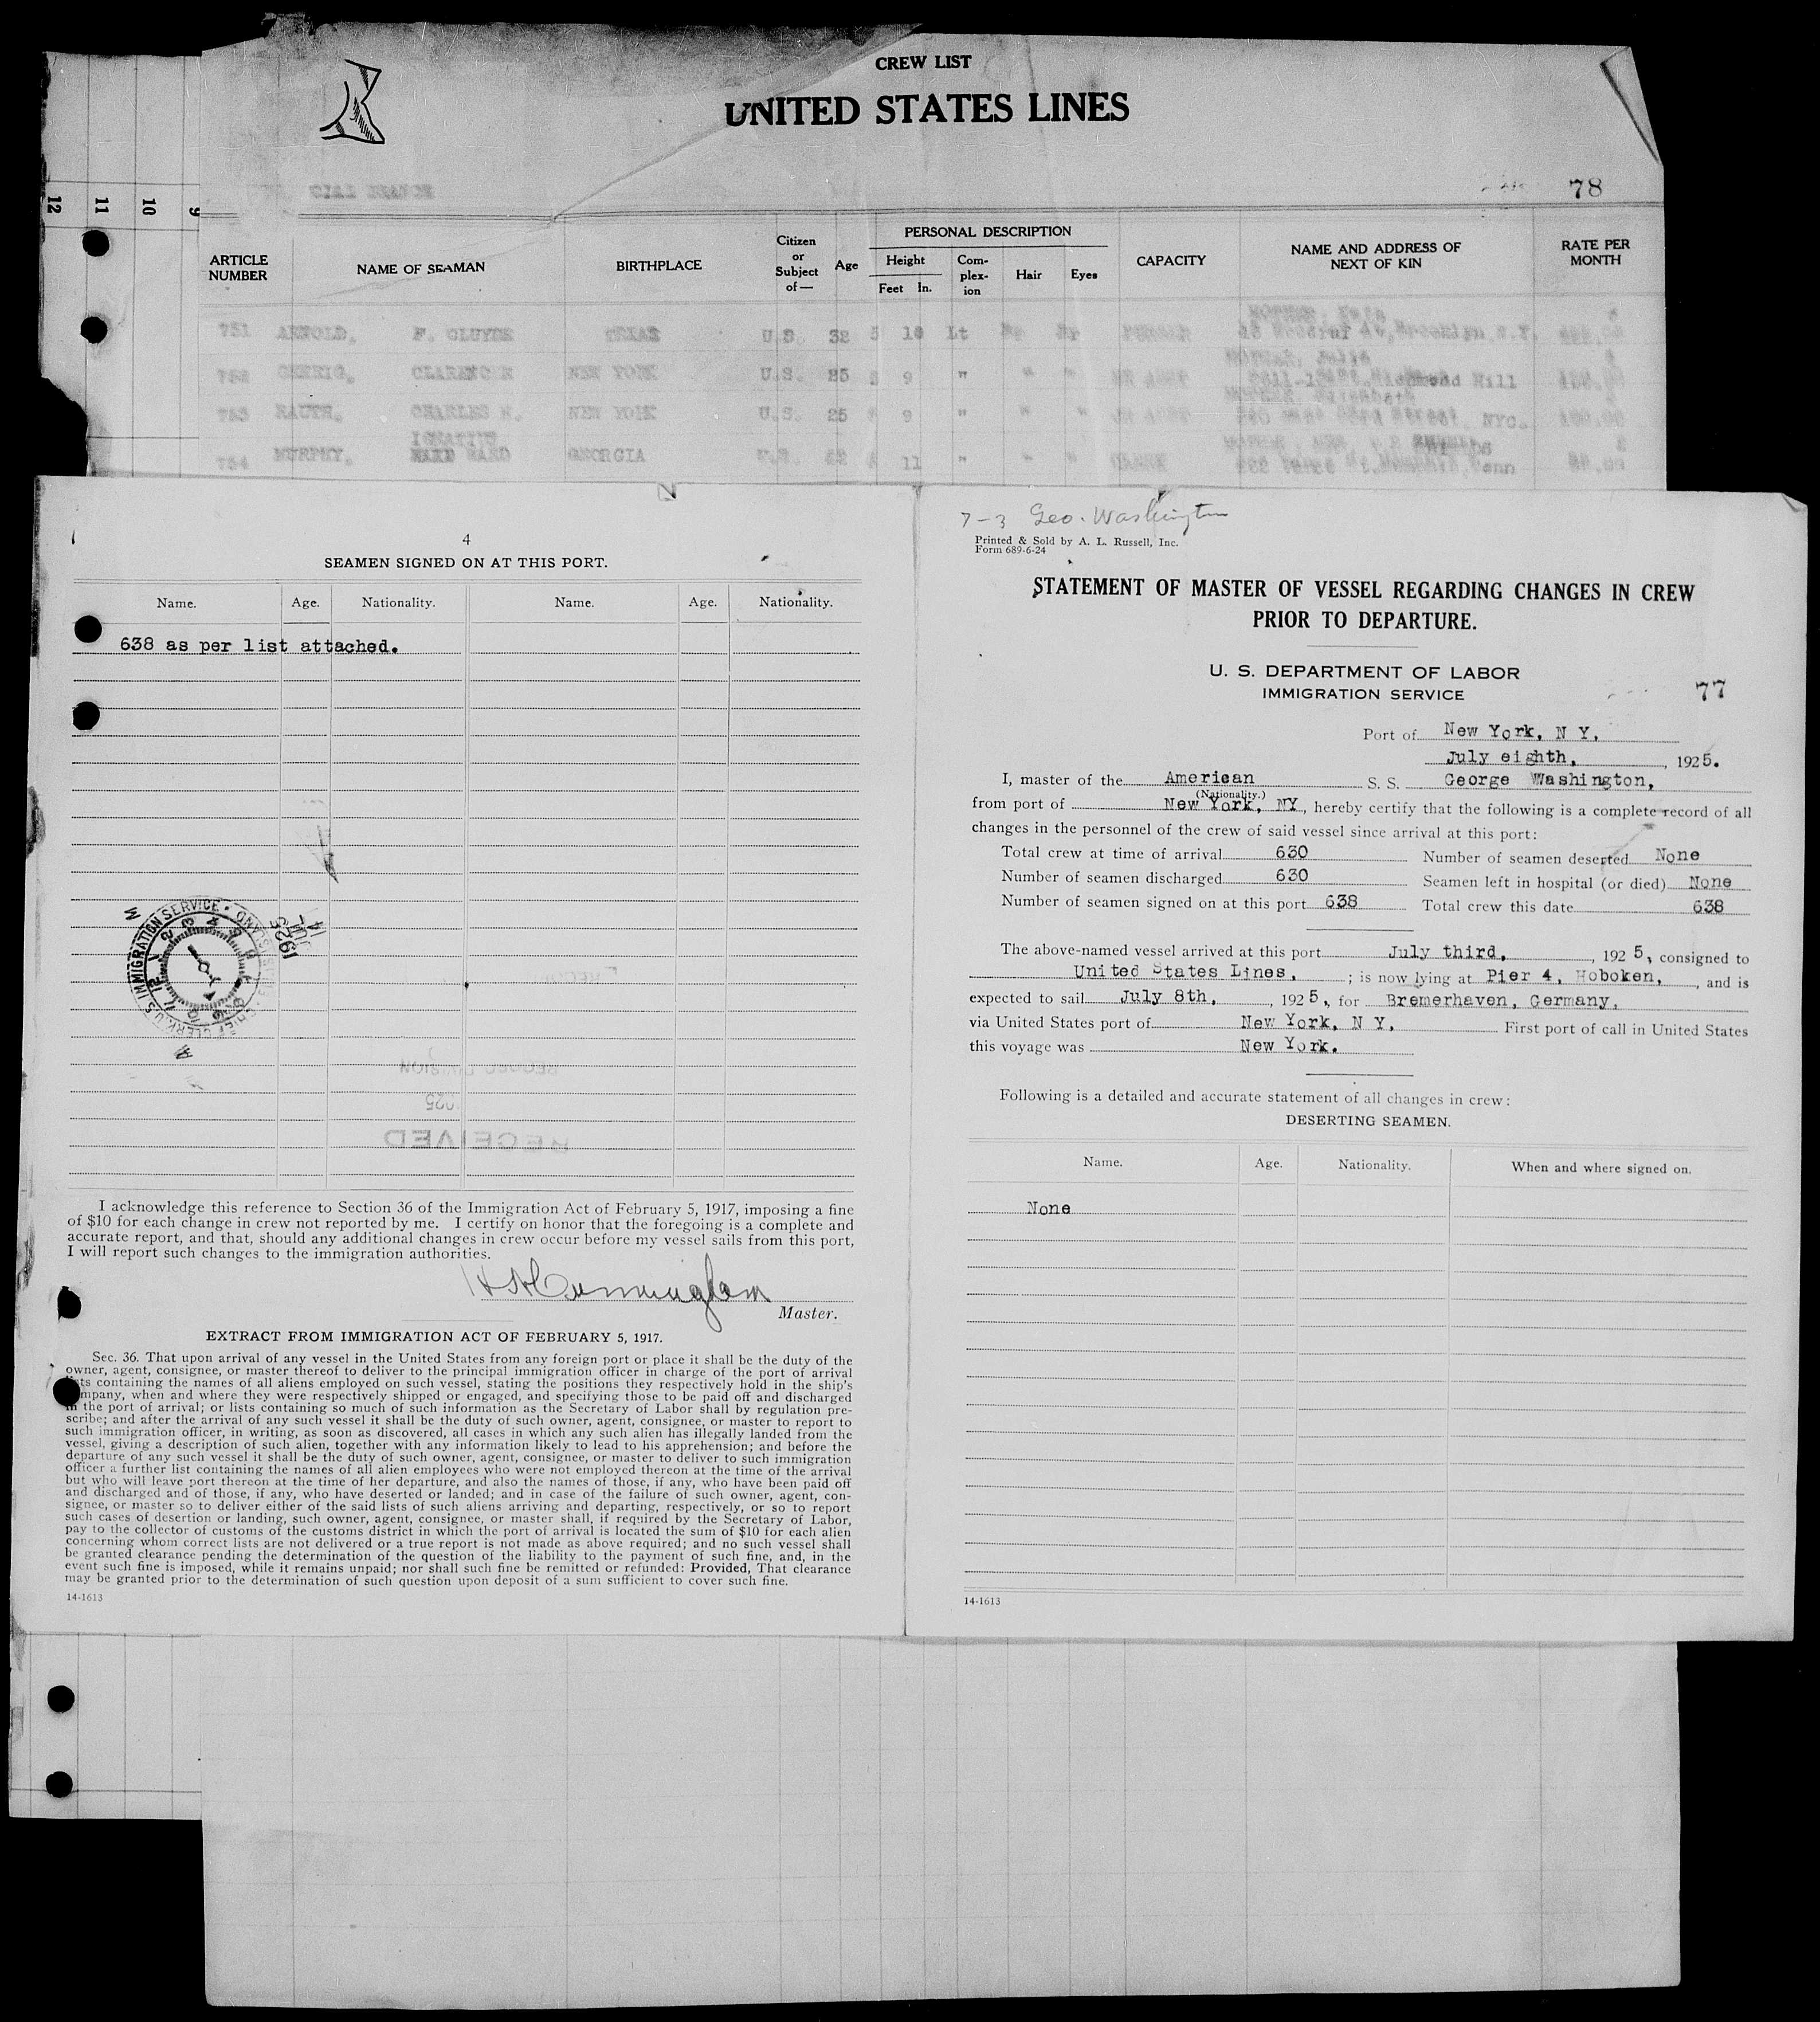 CREW LIST
UNITED STATES LINES
78
12 11 10 9
ARTICLE NUMBER NAME OF SEAMAN BIRTHPLACE Citizen or Subject of— Age PERSONAL DESCRIPTION Height Feet In. Complexion Hair Eyes CAPACITY NAME AND ADDRESS OF NEXT OF KIN RATE PER MONTH
751 ARNOLD, F. TEXAS U.S. 32 5 10 Lt
752 CLARENCE NEW YORK U.S. 25 5 9 " " " Richmond Hill
753 CHARLES NEW YORK U.S. 25 9 " " " Street, NYC.
IGNATIUS
754 MURPHY, WARD GEORGIA 11 " " "
4
SEAMEN SIGNED ON AT THIS PORT.
Name. Age. Nationality. Name. Age. Nationality.
638 as per list attached.
U.S. IMMIGRATION SERVICE
CHIEF CLERK
JUL 1925
RECEIVED
I acknowledge this reference to Section 36 of the Immigration Act of February 5, 1917, imposing a fine
of $10 for each change in crew not reported by me. I certify on honor that the foregoing is a complete and
accurate report, and that, should any additional changes in crew occur before my vessel sails from this port,
I will report such changes to the immigration authorities.
Cunningham
Master.
EXTRACT FROM IMMIGRATION ACT OF FEBRUARY 5, 1917.
Sec. 36. That upon arrival of any vessel in the United States from any foreign port or place it shall be the duty of the
owner, agent, consignee, or master thereof to deliver to the principal immigration officer in charge of the port of arrival
lists containing the names of all aliens employed on such vessel, stating the positions they respectively hold in the ship's
company, when and where they were respectively shipped or engaged, and specifying those to be paid off and discharged
in the port of arrival; or lists containing so much of such information as the Secretary of Labor shall by regulation pre-
scribe; and after the arrival of any such vessel it shall be the duty of such owner, agent, consignee, or master to report to
such immigration officer, in writing, as soon as discovered, all cases in which any such alien has illegally landed from the
vessel, giving a description of such alien, together with any information likely to lead to his apprehension; and before the
departure of any such vessel it shall be the duty of such owner, agent, consignee, or master to deliver to such immigration
officer a further list containing the names of all alien employees who were not employed thereon at the time of the arrival
but who will leave port thereon at the time of her departure, and also the names of those, if any, who have been paid off
and discharged and of those, if any, who have deserted or landed; and in case of the failure of such owner, agent, con-
signee, or master so to deliver either of the said lists of such aliens arriving and departing, respectively, or so to report
such cases of desertion or landing, such owner, agent, consignee, or master shall, if required by the Secretary of Labor,
pay to the collector of customs of the customs district in which the port of arrival is located the sum of $10 for each alien
concerning whom correct lists are not delivered or a true report is not made as above required; and no such vessel shall
be granted clearance pending the determination of the question of the liability to the payment of such fine, and, in the
event such fine is imposed, while it remains unpaid; nor shall such fine be remitted or refunded: Provided, That clearance
may be granted prior to the determination of such question upon deposit of a sum sufficient to cover such fine.
14-1613
7-3 Geo. Washington
Printed & Sold by A. L. Russell, Inc.
Form 689-6-24
STATEMENT OF MASTER OF VESSEL REGARDING CHANGES IN CREW
PRIOR TO DEPARTURE.
U. S. DEPARTMENT OF LABOR
IMMIGRATION SERVICE
77
Port of New York, N Y,
July eighth, , 1925.
I, master of the American S. S. George Washington,
(Nationality.)
from port of New York, NY, hereby certify that the following is a complete record of all
changes in the personnel of the crew of said vessel since arrival at this port:
Total crew at time of arrival 630 Number of seamen deserted None
Number of seamen discharged 630 Seamen left in hospital (or died) None
Number of seamen signed on at this port 638 Total crew this date 638
The above-named vessel arrived at this port July third, , 1925, consigned to
United States Lines, ; is now lying at Pier 4, Hoboken, , and is
expected to sail July 8th, , 1925, for Bremerhaven, Germany,
via United States port of New York, N Y, First port of call in United States
this voyage was New York.
Following is a detailed and accurate statement of all changes in crew:
DESERTING SEAMEN.
Name. Age. Nationality. When and where signed on.
None
14-1613